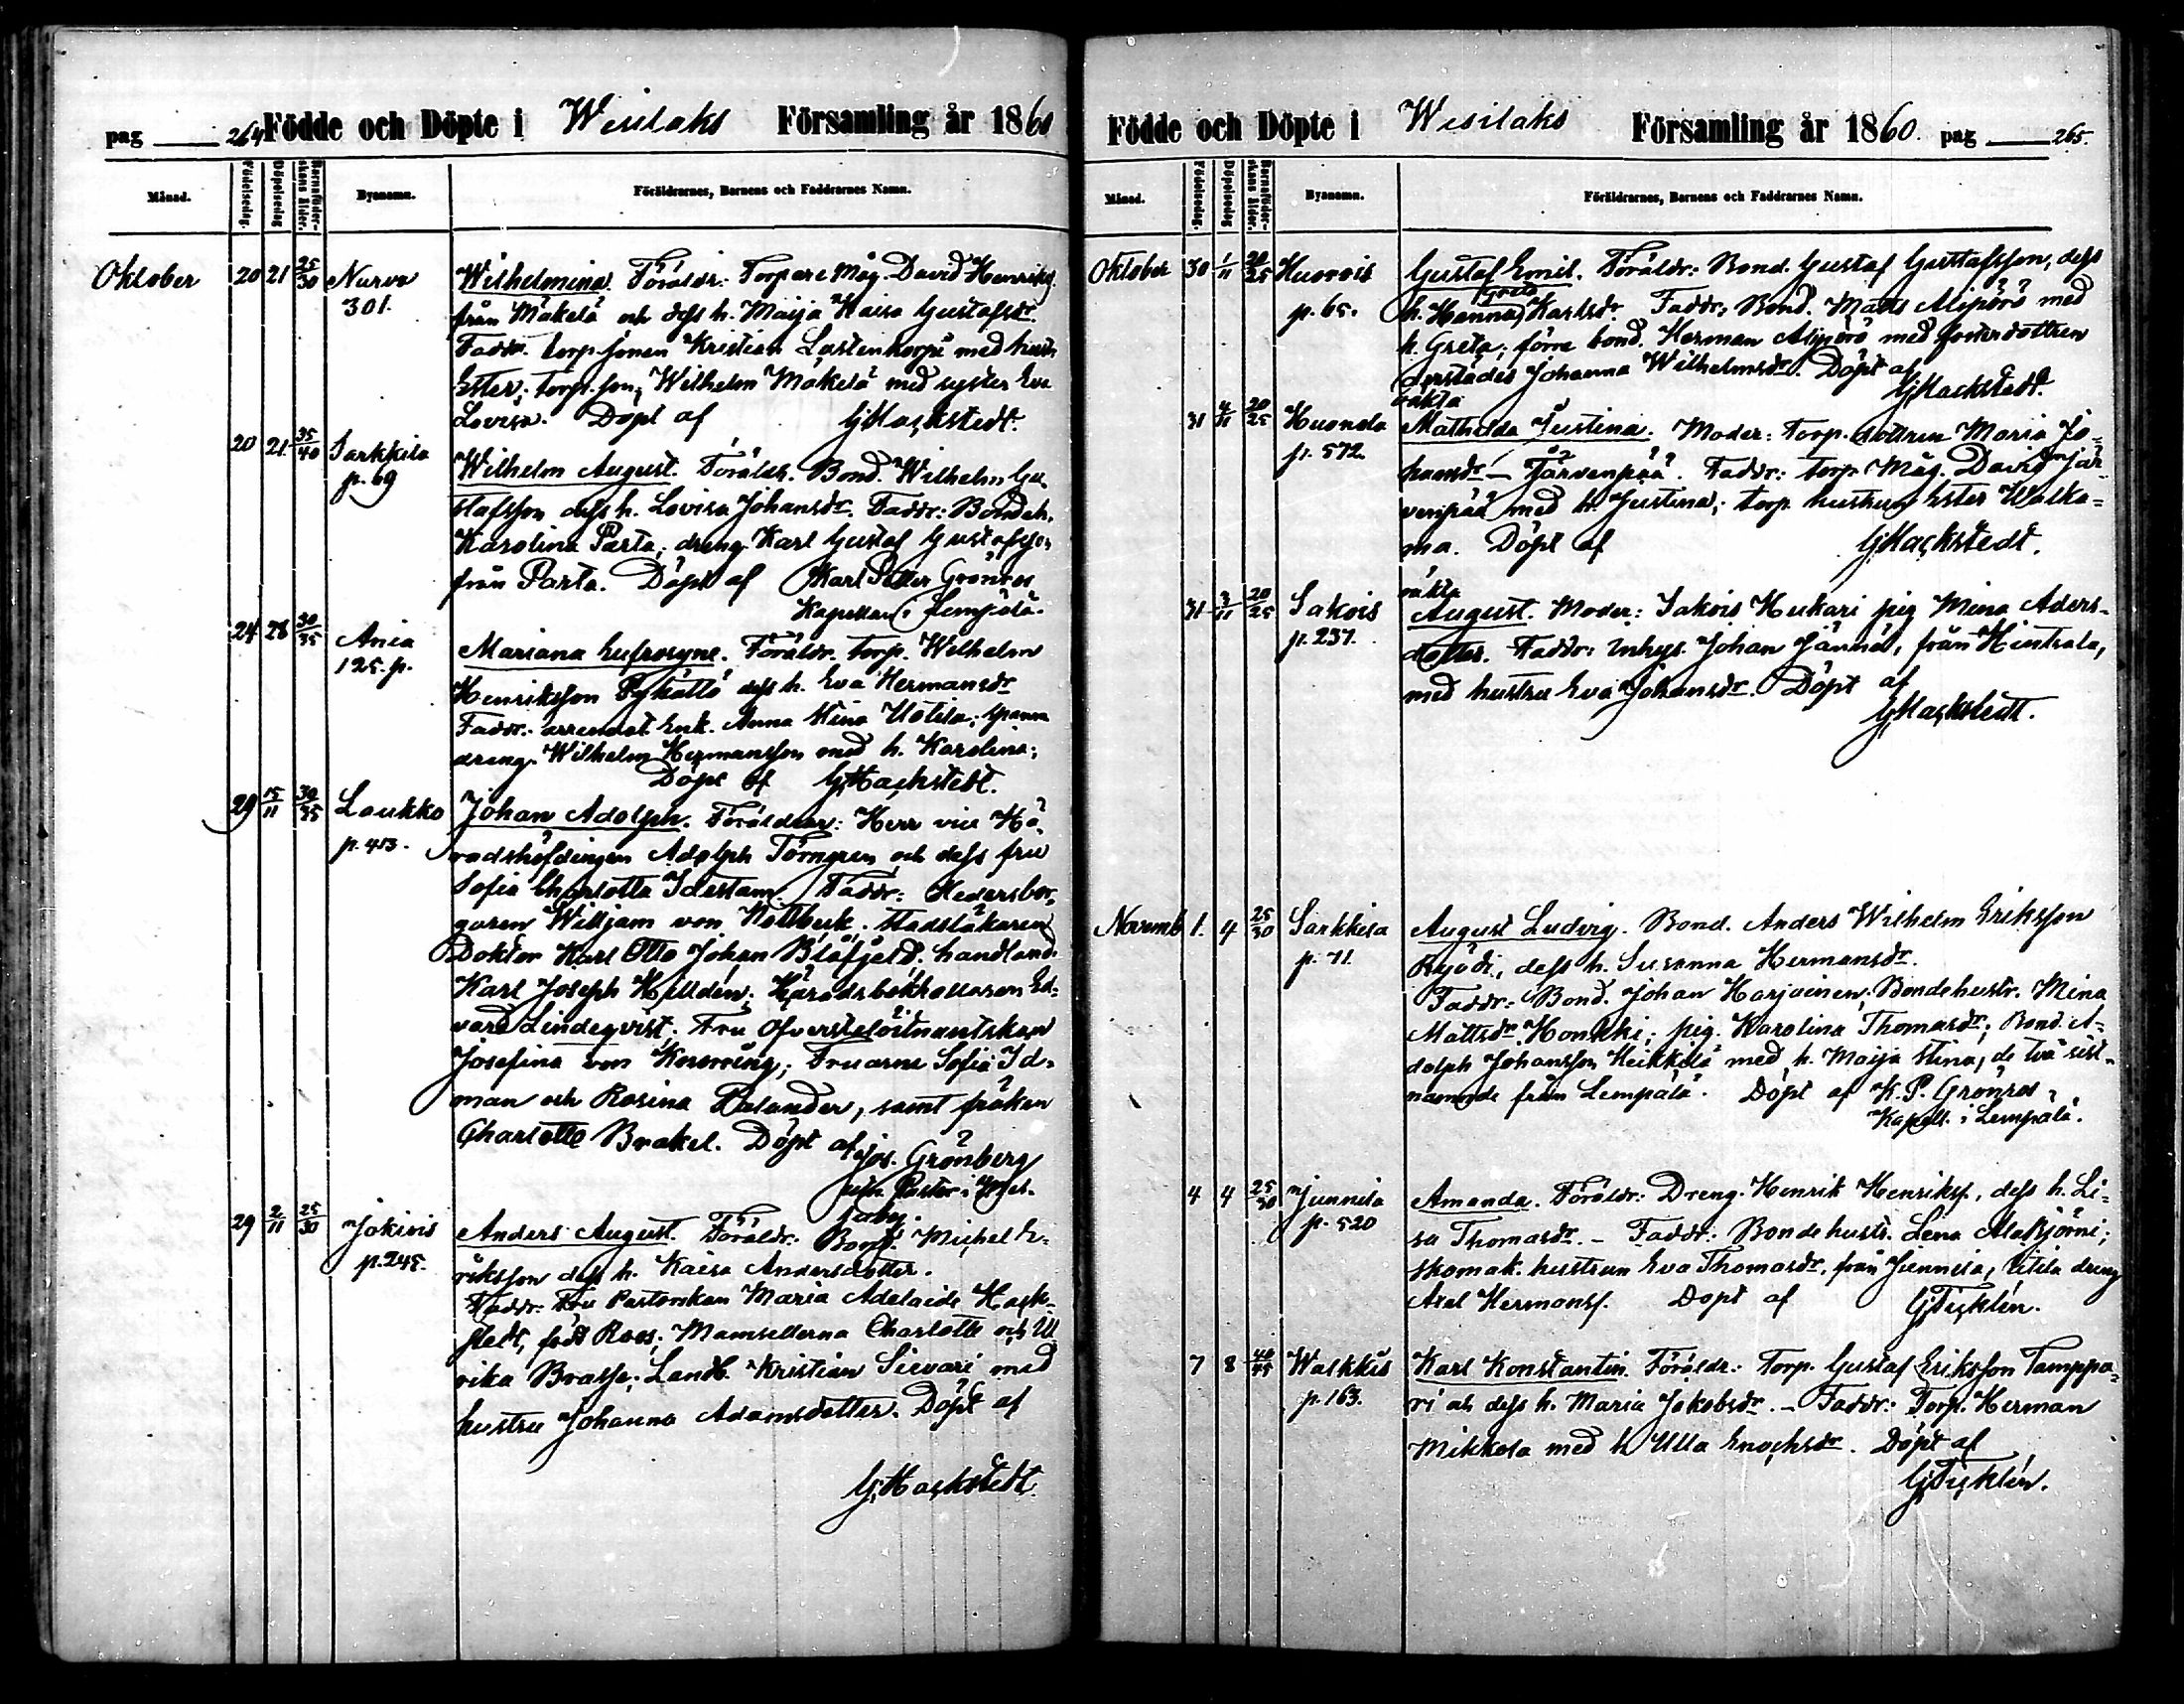 pag 264 Födde och Döpte i Wesilaks Församling år 1860
Månad. Födelsedag. Döpelsedag Barnaföderskans ålder. Byanamn. Föräldrarnes, Barnens och Faddrarnes Namn.
Oktober 20 21 25/30 Narva Wilhelmina. Föräldr: Torpare Måg David Henriks
301. från Mäkelä och dess h. Maija Kaisa Gustafsdr.
Faddr. torp. sonen Kristian Lastentorpi med hustr
Ester; torp. son, Wilhelm Mäkelä med syster Eva
Lovisa. Döpt af G Hackstedt.
20 21 35/40 Sarkkila
p. 69 Wilhelm August. Föräldr. Bond. Wilhelm Gu
stafsson dess h. Lovisa Johansdr. Faddr: Bondeh.
Karolina Parta, dreng Karl Gustaf Gustafsson
från Parta. Döpt af Karl Petter Grönros
Kapellan i Lempälä.
24 28 30/35 Ania Mariana Eufrosyne. Föräldr. torp. Wilhelm
125. p. Henriksson dess h. Eva Hermansdr
Faddr. arrendat. Enk. Anna Stina Uotila;
dreng. Wilhelm Hermansson med h. Karolina;
Döpt af G Hackstedt.
29 15/11 30/35 Laukko Johan Adolph. Föräldrar: Herr vice Hä
p. 413. radshöfdingen Adolph Törngren och dess fru
Sofia Charlotta Idestam. Faddr: Hedersbor
garen Willjam von Nottbeck. Stadsläkaren
Doktor Karl Otto Johan Blåfjeld. handland.
Karl Joseph Hilldén; Häradsbokhållaren Ed-
vard Lindeqvist. Fru Öfverstelöitnantskan
Josefina von Kræmer; Fruarne Sofia Id-
man och Rosina Palander, samt fröken
Charlotte Brakel. Döpt af Jos. Grönberg
Pastor i Mes-
suby.
29 2/11 25/30 Jokiois Anders August. Föräldr. Bond. Michel E-
p. 245. riksson dess h. Kaisa Andersdotter.
Faddr: Fru Pastorskan Maria Adelaide Hack-
stedt, född Roos; Mamsellerna Charlotte och Ul
rika Brasse; Landb. Kristian Sievari med
hustru Johanna Adamsdotter. Döpt af
G Hackstedt.
Födde och Döpte i Wesilaks Församling år 1860. pag 265.
Månad. Födelsedag. Döpelsedag Barnaföderskans ålder. Byanamn. Föräldrarnes, Barnens och Faddrarnes Namn.
Oktober 30 1/11 20/25 Huorois Gustaf Emil. Föräldr: Bond. Gustaf Gustafsson, dess
Greta
p. 65. h. Hanna Karlsdr. Faddr: Bond. Matts Alipörö med
h. Greta; förre bond. Herman Alipörö med fosterdottren
derstädes Johanna Wilhelmsdr. Döpt af
G Hackstedt.
oäkta
31 4/11 20/25 Kuonola Mathilda Justina. Moder: Torp. dottren Maria Jo-
p. 572. hansdr – Järvenpää. Faddr: torp. Måg. David Jär
venpää med h. Justina; torp. hustrun Ester Walka-
ma. Döpt af G Hackstedt.
oäkta
31 3/11 20/25 Sakois August. Moder: Sakois Hukari pig Mina Aders-
p. 237. dotter. Faddr: inhys. Johan Jänne, från Hintsala,
med hustru Eva Johansdr. Döpt af
G Hackstedt.
Novemb 1. 4 25/30 Sarkkila August Ludvig. Bond. Anders Wilhelm Eriksson
p. 71. dess h. Susanna Hermansdr.
Faddr: Bond. Johan Harjuinen; Bondehustr. Mina
Mattsdr. Honkki; pig. Karolina Thomasdr; Bond. A-
dolph Johansson Heikkilä med h. Maija Stina, de två sist-
nämnde från Lempälä. Döpt af K. P. Grönros
Kapell. i Lempälä.
4 4 25/30 Junnila Amanda. Föräldr: Dreng. Henrik Henriks., dess h. Li-
p. 520 sa Thomasdr. – Faddr: Bondehustr. Lena Alakjörni;
skomak. hustrun Eva Thomasdr, från Junnila, Uitila dreng
Axel Hermanss. Döpt af G Ticklén.
7 8 40/45 Walkkis Karl Konstantin. Föräldr: Torp. Gustaf Eriksson Tamppa-
p. 163. ri och dess h. Maria Jakobsdr. – Faddr: Torp. Herman
Mikkola med h. Ulla Enochsdr. Döpt af
G Ticklén.